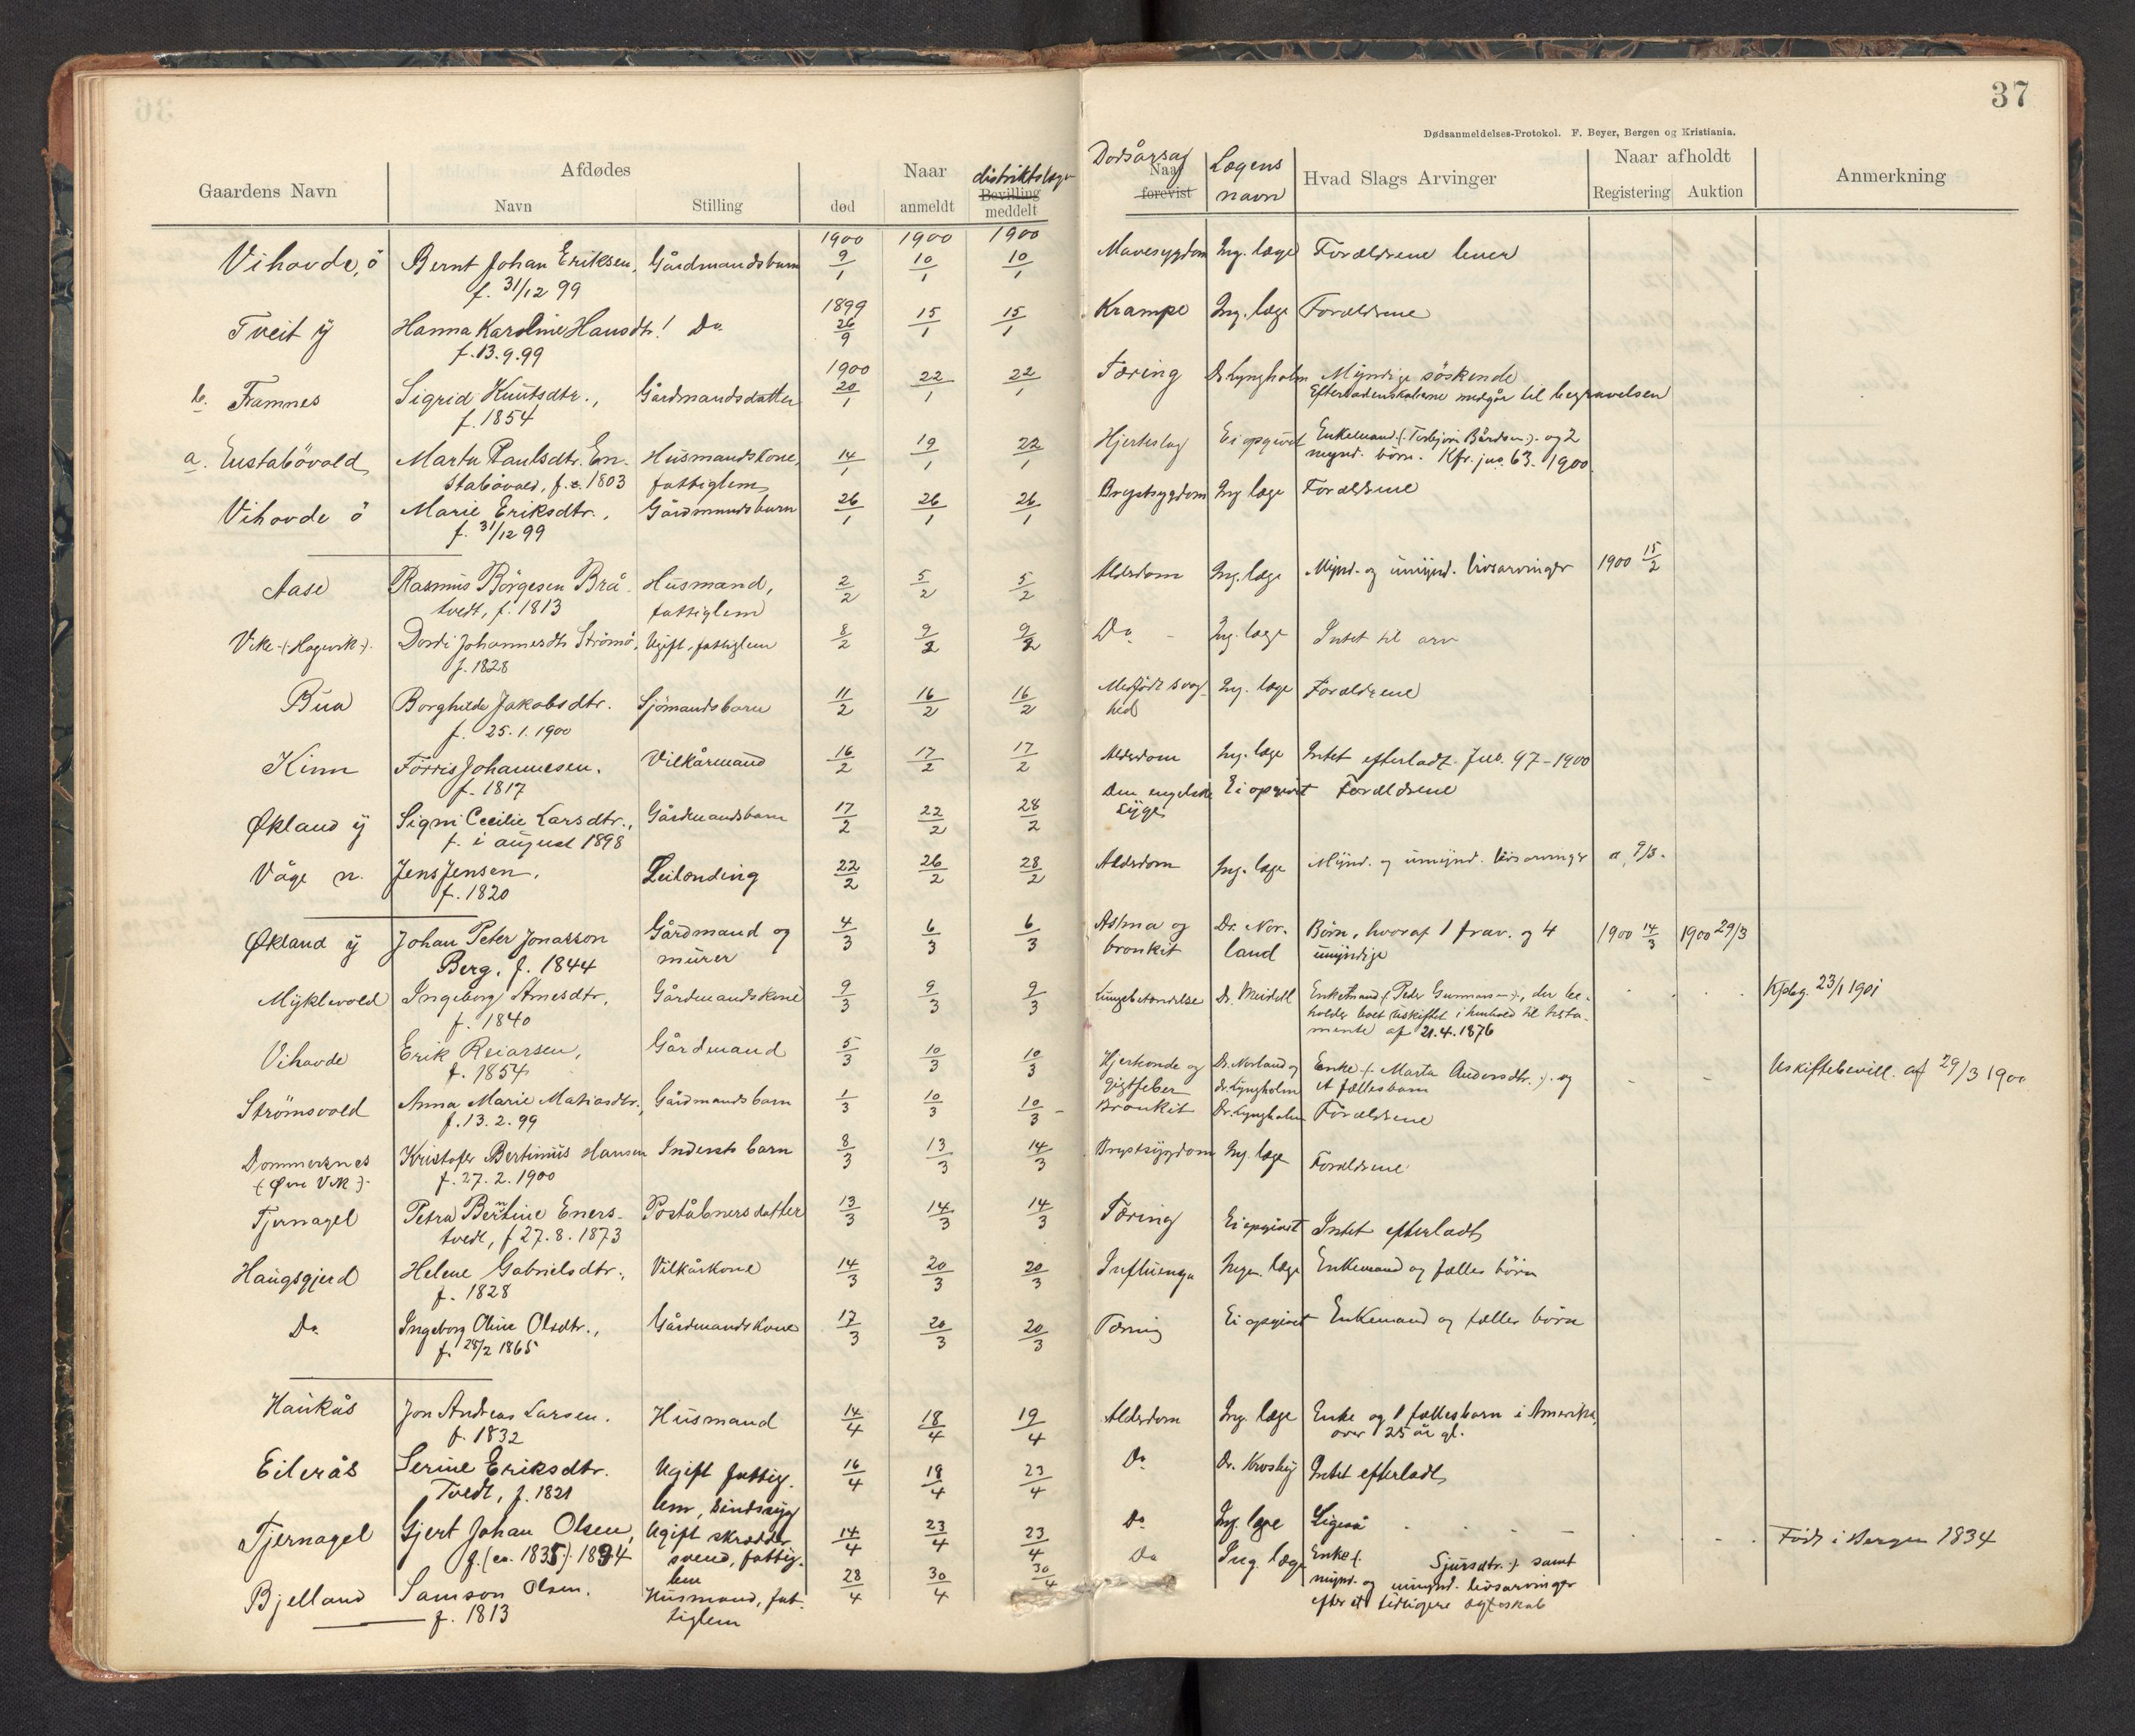 37
Dødsanmeldelses-Protokol. F. Beyer, Bergen og Kristiania.
Gaardens Navn
Afdødes
Navn
Stilling
Naar
død
anmeldt
distriktslæge
Bevilling
meddelt
Dødsårsag
Naar
forevist
Lægens
navn
Hvad Slags Arvinger
Naar afholdt
Registering
Auktion
Anmerkning
1900 1900 1900
Vihovde, ö Bernt Johan Eriksen, Gårdmandsbarn 9/1 10/1 10/1 Mavesygdom Ing. læge Forældrene lever
f. 31/12 99
1899
Tveit y Hanna Karoline Hansdtr! Do 26/9 15/1 15/1 Krampe Ing. læge Forældrene
f. 13.9.99
1900
b. Framnes Sigrid Knutsdtr., Gårdmandsdatter 20/1 22/1 22/1 Tæring Dr Lyngholm Myndige söskende
f. 1854 Efterladenskaberne medgår til begravelsen
a. Enstabövold Marta Paulsdtr. En- Husmandskone, 14/1 19/1 22/1 Hjerteslag Ei opgivet Enkemand (Torbjörn Bårdsen) og 2
stabövold, f. c. 1803 fattiglem mynd. börn. Kfr. jno. 63. 1900.
Vihovde ö Marie Eriksdtr., Gårdmandsbarn 26/1 26/1 26/1 Brystsygdom Ing læge Forældrene
f. 31/12 99
Aase Rasmus Börgesen Brå- Husmand, 2/2 5/2 5/2 Alderdom Ing. læge Mynd. og umynd. livsarvinger 1900 15/2
tvedt, f. 1813 fattiglem
Vike (Hagevik) Dordi Johannesdtr Strömö, Ugift, fattiglem 8/2 9/2 9/2 Do Ing. læge Intet til arv
f. 1828
Bua Borghilde Jakobsdtr. Sjömandsbarn 11/2 16/2 16/2 Medfödt svag- Ing. læge Forældrene
f. 25.1.1900 hed
Kinn Törris Johannesen. Vilkårmand 16/2 17/2 17/2 Alderdom Ing. læge Intet efterladt. Jno. 97-1900
f. 1817
Økland y Signi Cecilie Larsdtr., Gårdmandsbarn 17/2 22/2 28/2 Den engelske Ei opgivet Forældrene
f. i august 1898 syge
Våge n. Jens Jensen, Leilending 22/2 26/2 28/2 Alderdom Ing. læge Mynd. og umynd. livsarvinger a. 9/3.
f. 1820
Økland y Johan Peter Jonasson Gårdmand og 4/3 6/3 6/3 Astma og Dr. Nor- Börn, hvoraf 1 frav. og 4 1900 14/3 1900 29/3
Berg, f. 1844 murer bronkit land umyndige
Myklevold Ingeborg Arnesdtr, Gårdmandskone 9/3 9/3 9/3 Lungebetændelse Dr. Meidell Enkemand (Peder Gunnarsen), der be- Kpbg. 23/1 1901
f. 1840 holder boet uskiftet i henhold til testa-
mente af 21.4.1876
Vihovde Erik Reiarsen, Gårdmand 5/3 10/3 10/3 Hjerteonde og Dr. Norland og Enke (Marta Andersdtr.) og Uskiftebevill. af 29/3 1900
f. 1854 gigtfeber dr. Lyngholm et fællesbarn
Strömsvold Anna Marie Matiasdtr. Gårdmandsbarn 1/3 10/3 10/3 Bronkit Dr. Lyngholm Forældrene
f. 13.2.99
Dommersnes Kristofer Bertinius Hansen Inderstsbarn 8/3 13/3 14/3 Brystsygdom Ing. læge Forældrene
(Øvre Vik) f. 27.2.1900
Tjernagel Petra Berntine Eners- Poståbnersdatter 13/3 14/3 14/3 Tæring Ei opgivet Intet efterladt
tvedt, f 27.8.1873
Haugsgjerd Helene Gabrielsdtr., Vilkårskone 14/3 20/3 20/3 Influenza Ingen læge Enkemand og fælles börn
f. 1828
Do Ingeborg Oline Olsdtr., Gårdmandskone 17/3 20/3 20/3 Tæring Ei opgivet Enkemand og fælles börn
f. 28/2 1865
Haukås Jon Andreas Larsen. Husmand 14/4 18/4 19/4 Alderdom Ing. læge Enke og 1 fællesbarn i Amerika,
f. 1832 over 25 år gl.
Eilerås Serine Eriksdtr. Ugift fattig- 16/4 18/4 23/4 Do Dr. Krosby Intet efterladt
Tvedt, f. 1821 lem, sindssyg
Tjernagel Gjert Johan Olsen, Ugift skrædder- 14/4 23/4 23/4 Do Ing. læge Ligeså Född i Bergen 1834
f. (ca. 1835) 1834 svend, fattig-
lem
Bjelland Samson Olsen. Husmand, fat- 28/4 30/4 30/4 Do Ing. læge Enke ( Sjursdtr.) samt
f. 1813 tiglem mynd. og umynd. livsarvinger
efter et tidligere ægteskab